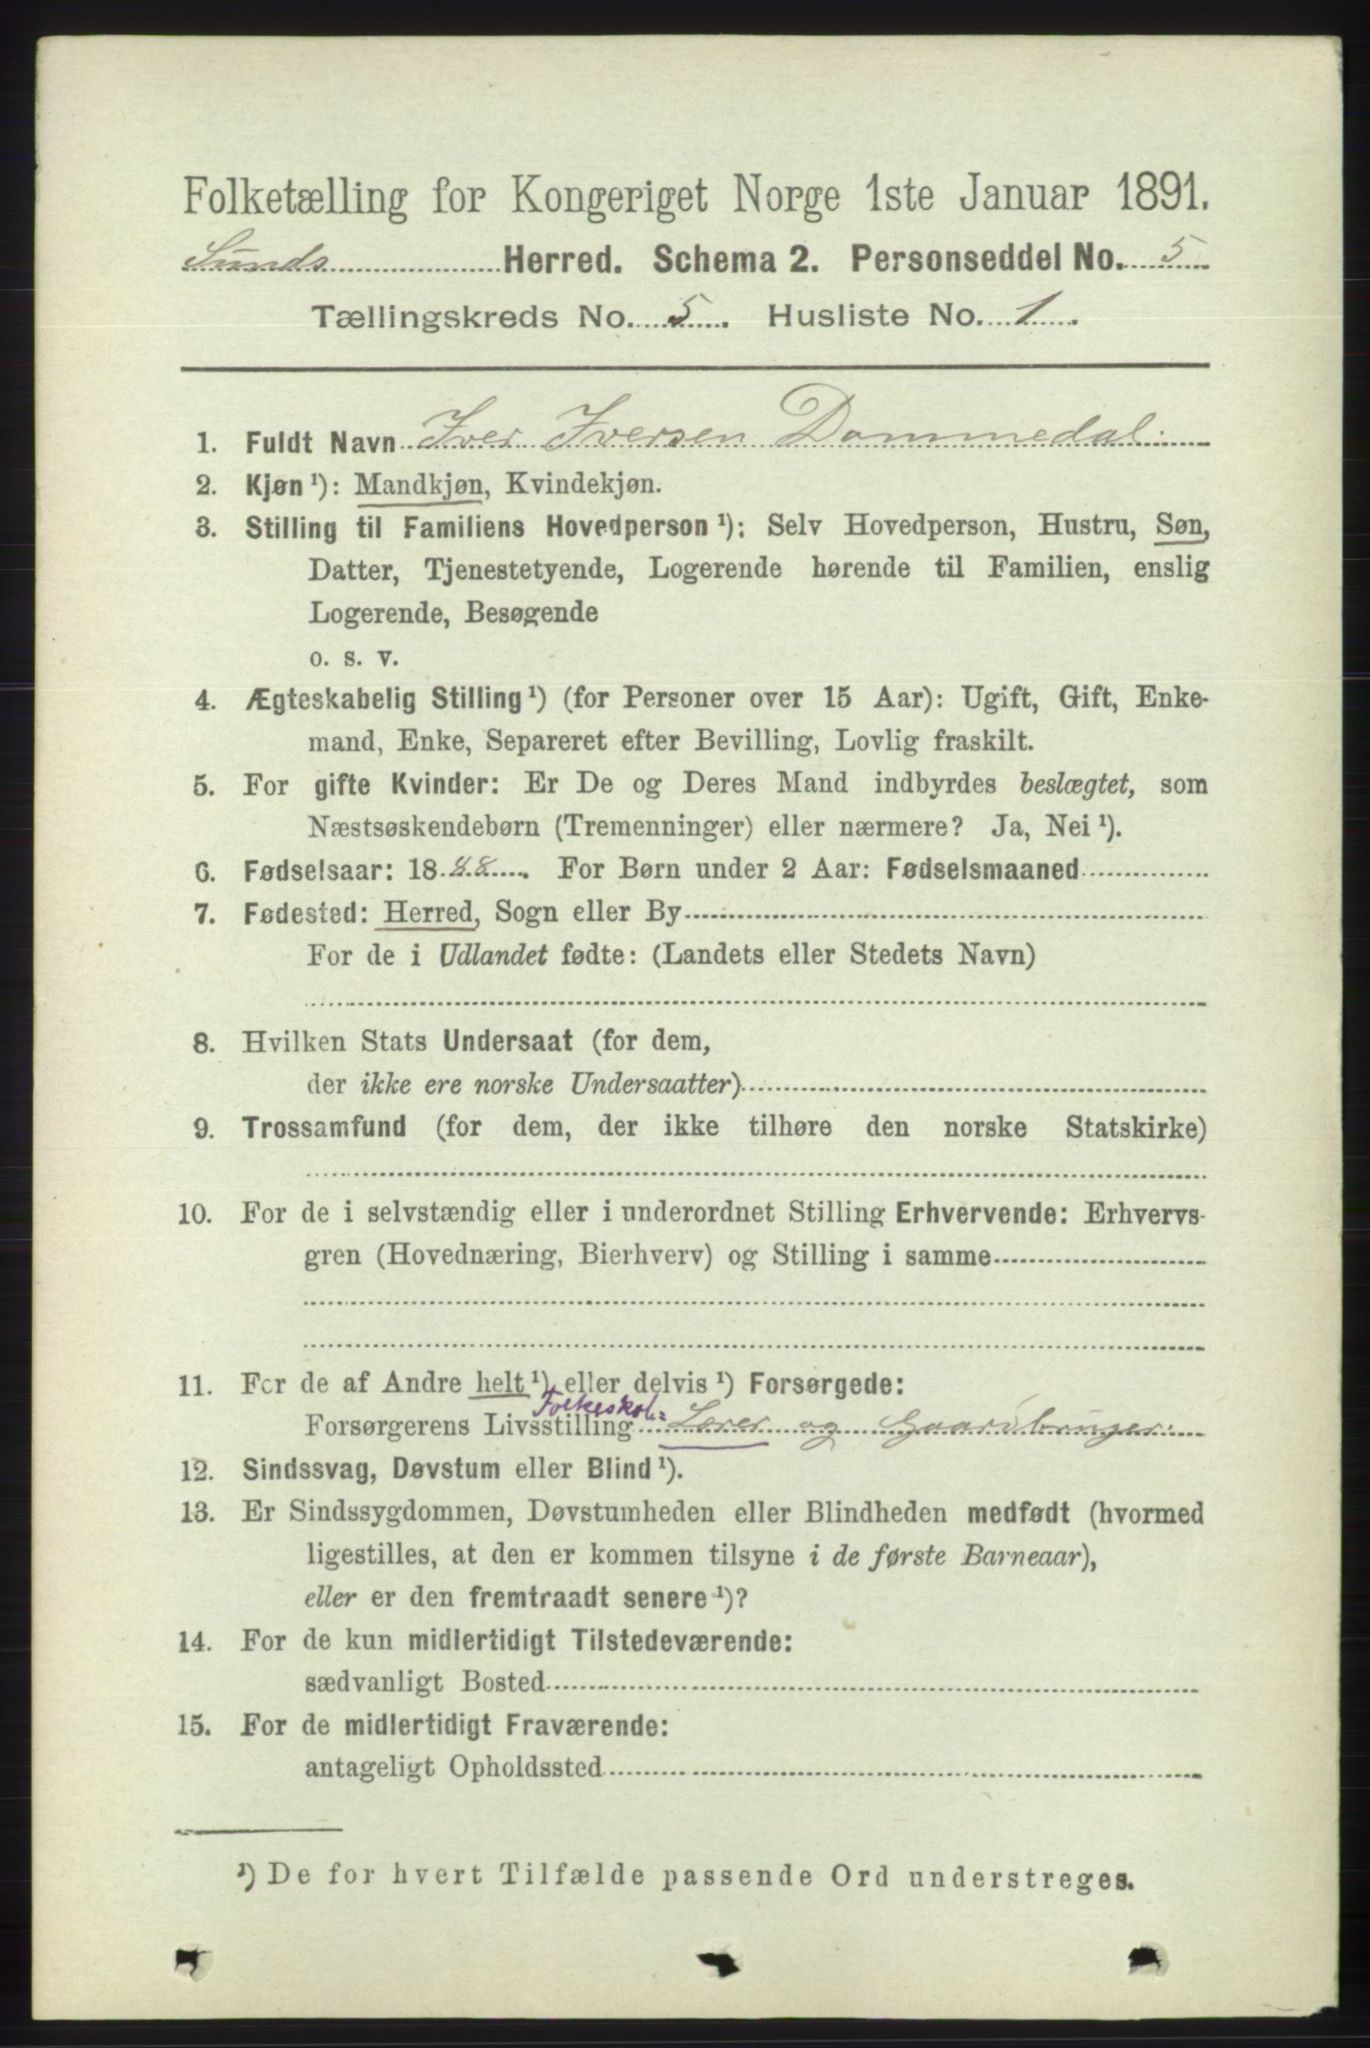 Folketælling for Kongeriget Norge 1ste Januar 1891.
Sunds Herred. Schema 2. Personseddel No. 5
Tællingskreds No. 5. Husliste No. 1.
1. Fuldt Navn Iver Iversen Dommedal.
2. Kjøn¹): Mandkjøn, Kvindekjøn.
3. Stilling til Familiens Hovedperson¹): Selv Hovedperson, Hustru, Søn,
Datter, Tjenestetyende, Logerende hørende til Familien, enslig
Logerende, Besøgende
o. s. v.
4. Ægteskabelig Stilling¹) (for Personer over 15 Aar): Ugift, Gift, Enke-
mand, Enke, Separeret efter Bevilling, Lovlig fraskilt.
5. For gifte Kvinder: Er De og Deres Mand indbyrdes beslægtet, som
Næstsøskendebørn (Tremenninger) eller nærmere? Ja, Nei¹).
6. Fødselsaar: 1888. For Børn under 2 Aar: Fødselsmaaned
7. Fødested: Herred, Sogn eller By
For de i Udlandet fødte: (Landets eller Stedets Navn)
8. Hvilken Stats Undersaat (for dem,
der ikke ere norske Undersaatter)
9. Trossamfund (for dem, der ikke tilhøre den norske Statskirke)
10. For de i selvstændig eller i underordnet Stilling Erhvervende: Erhvervs-
gren (Hovednæring, Bierhverv) og Stilling i samme
11. For de af Andre helt¹) eller delvis¹) Forsørgede:
Folkeskole=
Forsørgerens Livsstilling Lærer og Gaardbruger.
12. Sindssvag, Døvstum eller Blind¹).
13. Er Sindssygdommen, Døvstumheden eller Blindheden medfødt (hvormed
ligestilles, at den er kommen tilsyne i de første Barneaar),
eller er den fremtraadt senere¹)?
14. For de kun midlertidigt Tilstedeværende:
sædvanligt Bosted
15. For de midlertidigt Fraværende:
antageligt Opholdssted
¹) De for hvert Tilfælde passende Ord understreges.